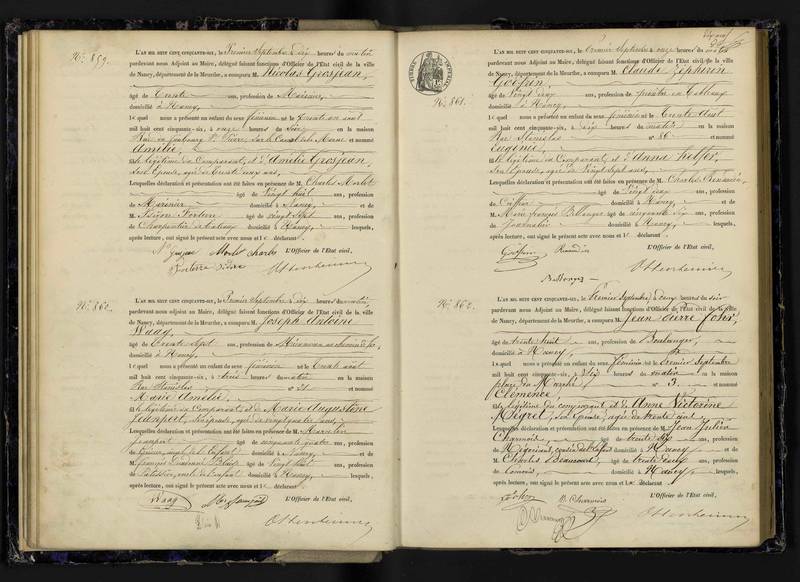 N.° 859.
L'AN MIL HUIT CENT CINQUANTE-SIX, le Premier Septembre à dix heures du matin
pardevant nous Adjoint au Maire, délégué faisant fonctions d'Officier de l'Etat civil de la ville
de Nancy, département de la Meurthe, a comparu M. Nicolas Grosjean,
âgé de Trente ans, profession de Marinier,
domicilié à Nancy,
lequel nous a présenté un enfant du sexe féminin né le Trente août
mil huit cent cinquante-six, à onze heures du soir en la maison
Rue du faubourg St Pierre, sur le Canal de la Marne et nommé
Amélie,
fille légitime du Comparant, et d'Amélie Grosjean,
son Epouse, agée de Trente ans,
Lesquelles déclaration et présentation ont été faites en présence de M. Charles Morlot
âgé de Vingt huit ans, profession
de Marinier domicilié à Nancy, et de
M. Isidore âgé de vingt sept ans, profession
de Charpentier de bateaux domicilié à Nancy, lesquels,
après lecture, ont signé le présent acte avec nous et le déclarant
L'Officier de l'Etat civil,
N.° 860.
L'AN MIL HUIT CENT CINQUANTE-SIX, le Premier Septembre, à dix heures du matin,
pardevant nous Adjoint au Maire, délégué faisant fonctions d'Officier de l'Etat civil de la ville
de Nancy, département de la Meurthe, a comparu M. Joseph Antoine
Waag,
âgé de Trente Sept ans, profession de
domicilié à Nancy,
lequel nous a présenté un enfant du sexe féminin né le Trente août
mil huit cent cinquante-six, à trois heures du matin en la maison
Rue Stanislas n° 21 et nommé
Marie Amélie,
fille légitime du Comparant, et de Marie Augustine
Jeanpert, son épouse, agée de vingt quatre ans,
Lesquelles déclaration et présentation ont été faites en présence de M.
Jeanpert âgé de cinquante quatre ans, profession
de domicilié à Nancy, et de
M. François âgé de Vingt huit ans, profession
de domicilié à Nancy, lesquels,
après lecture, ont signé le présent acte avec nous et le déclarant
Waag
L'Officier de l'Etat civil,
TIMBRE IMPERIAL
N.° 861.
L'AN MIL HUIT CENT CINQUANTE-SIX, le Premier Septembre à onze heures du matin
pardevant nous Adjoint au Maire, délégué faisant fonctions d'Officier de l'Etat civil de la ville
de Nancy, département de la Meurthe, a comparu M. Claude Zéphirin
âgé de Vingt deux ans, profession de peintre en
domicilié à Nancy,
lequel nous a présenté un enfant du sexe féminin né le Trente Août
mil huit cent cinquante-six, à dix heures du matin en la maison
Rue Stanislas n° 86 et nommé
Eugénie,
fille légitime du Comparant, et d'Anna
Son Epouse, agée de Vingt sept ans,
Lesquelles déclaration et présentation ont été faites en présence de M. Charles
âgé de Vingt deux ans, profession
de Coiffeur domicilié à Nancy, et de
M. Marie François Bellanger âgé de cinquante six ans, profession
de Journalier domicilié à Nancy, lesquels,
après lecture, ont signé le présent acte avec nous et le déclarant
L'Officier de l'Etat civil,
N.° 862.
L'AN MIL HUIT CENT CINQUANTE-SIX, le Premier Septembre, à deux heures du soir
pardevant nous Adjoint au Maire, délégué faisant fonctions d'Officier de l'Etat civil de la ville
de Nancy, département de la Meurthe, a comparu M. Jean Pierre
âgé de trente huit ans, profession de Boulanger,
domicilié à Nancy
lequel nous a présenté un enfant du sexe féminin né le Premier Septembre
mil huit cent cinquante-six, à six heures du matin en la maison
place du Marché n° 3. et nommé
Clémence,
fille légitime du comparant, et de Anne Victorine
Méyret, son Epouse, agée de trente cinq,
Lesquelles déclaration et présentation ont été faites en présence de M. Jean Julien
Charmois, âgé de trente six ans, profession
de Négociant, domicilié à Nancy et de
M. Charles âgé de trente neuf ans, profession
de commis, domicilié à Nancy, lesquels,
après lecture, ont signé le présent acte avec nous et le déclarant
Charmois
L'Officier de l'Etat civil,